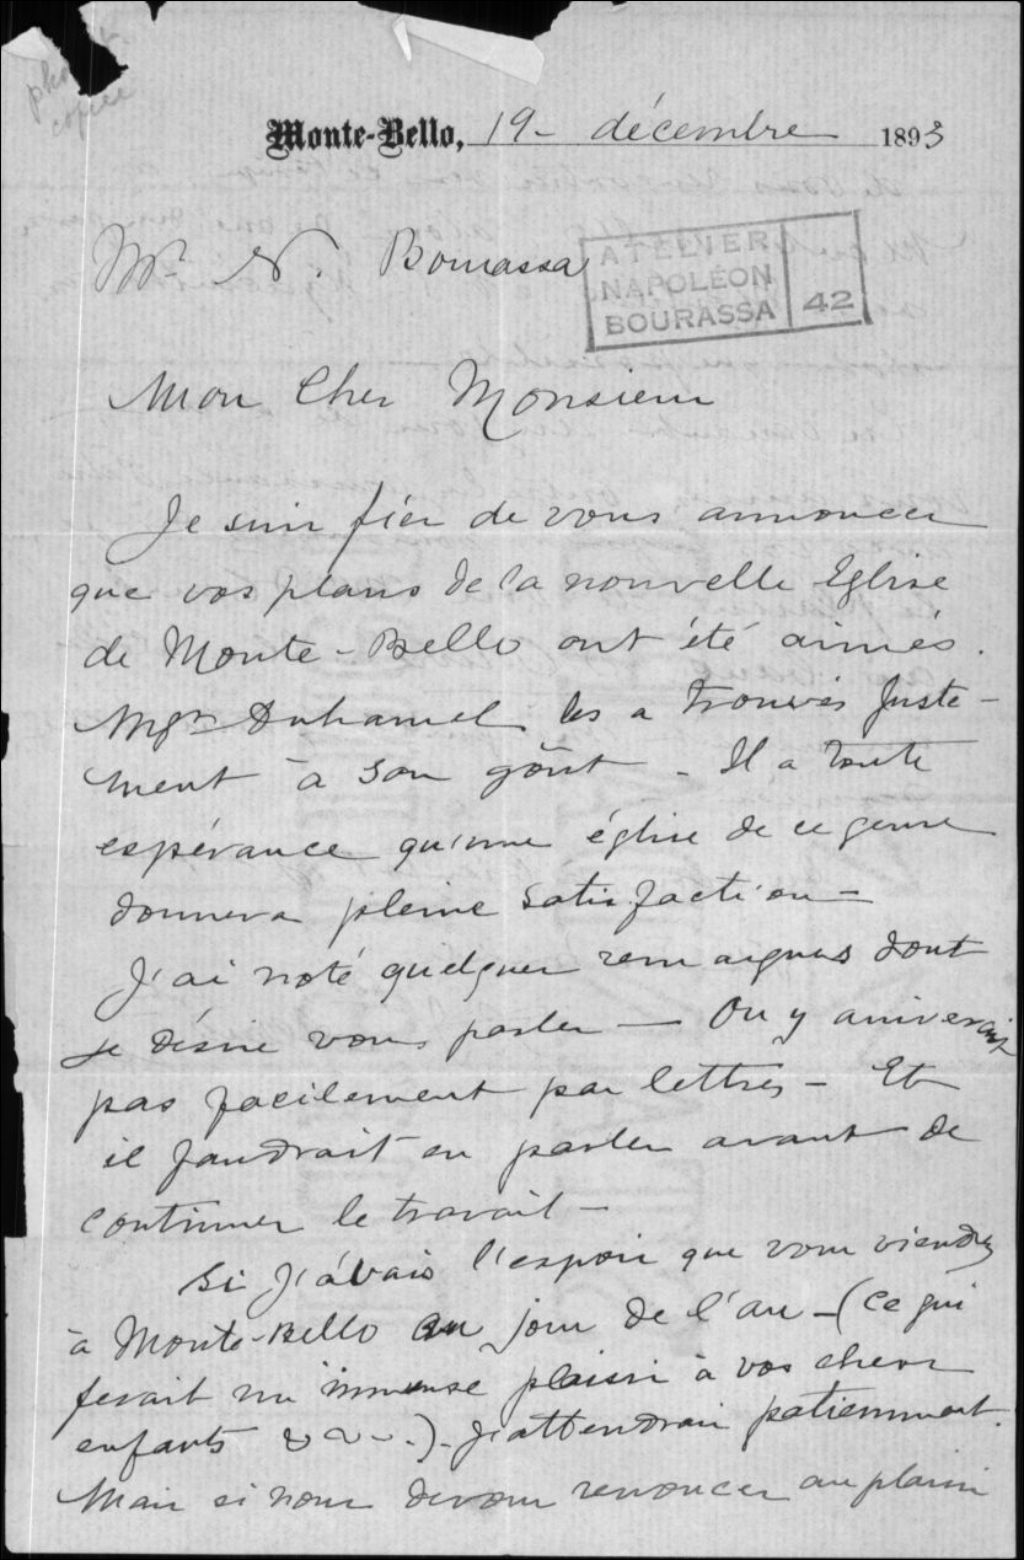 photo
copiée
Monte-Bello, 19 - décembre 1893
Mr. N. Bourassa
ATELIER
NAPOLÉON
BOURASSA
42
Mon Cher Monsieur
Je suis fier de vous annoncer
que vos plans de la nouvelle Eglise
de Monte-Bello ont été aimés.
Mgr Duhamel les a trouvés juste-
ment à son goût - Il a toute
espérance qu'une église de ce genre
donnera pleine satisfaction -
J'ai noté quelques remarques dont
je désire vous parler — On y arriverait
pas facilement par lettres - Et
il faudrait en parler avant de
continuer le travail -
Si j'avais l'espoir que vous viendrez
à Monte-Bello au jour de l'an - (ce qui
ferait un immense plaisir à vos chers
enfants &...). j'attendrais patiemment.
Mais si nous devons renoncer au plaisir